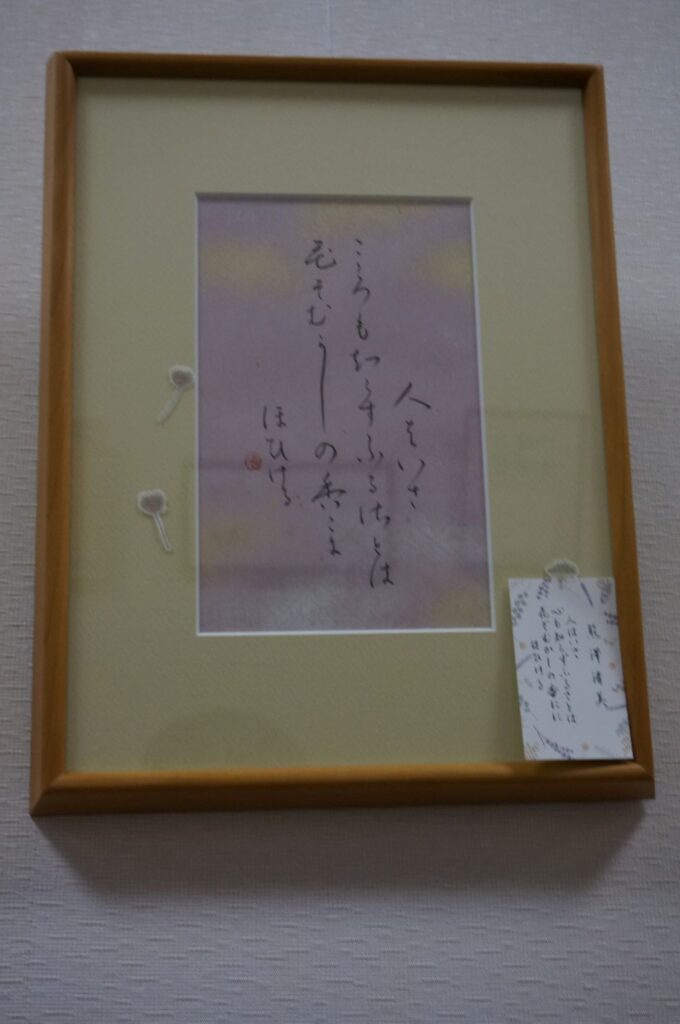 人はいさ
こゝろも知らすふるさとは
花そむかしの香にに
ほひける
澤清美
人はいさ
心も知らずふるさとは
花ぞむかしの香にに
ほひける